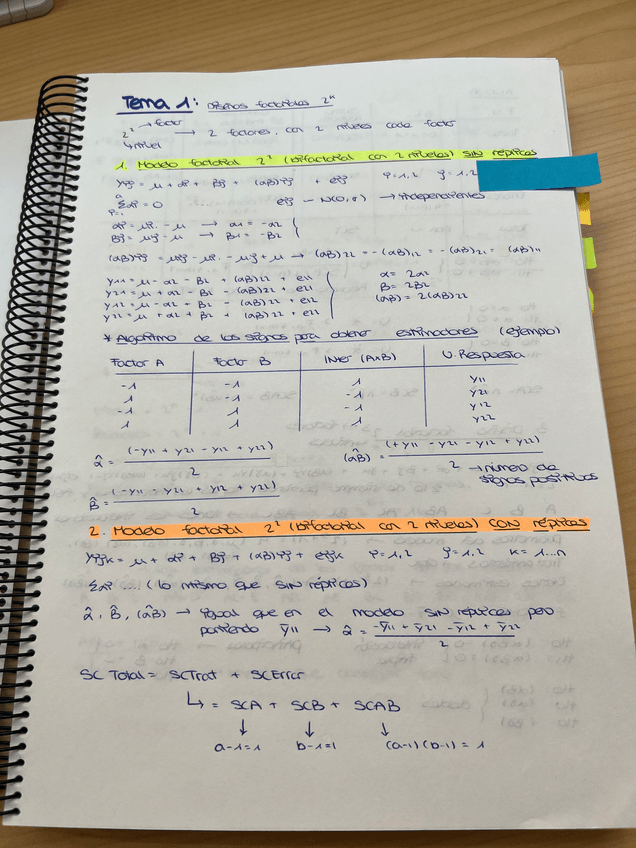 Tema 1: Diseños factoriales 2^k
2² → factor
↳ nivel
→ 2 factores, con 2 niveles cada factor
1. Modelo factorial 2² (bifactorial con 2 niveles) SIN réplicas
Yij = μ + αi + Bj + (αB)ij + eij i=1,2 j=1,2
a Σαi = 0 i=1 ... eij ~ N(0,σ) → independientes
αi = μi. - μ → α1 = -α2
Bj = μ.j - μ → B1 = -B2
(αB)ij = μij - μi. - μ.j + μ → (αB)22 = -(αB)12 = -(αB)21 = (αB)11
Y11 = μ - α2 - B2 + (αB)22 + e11
Y21 = μ + α2 - B2 - (αB)22 + e21
Y12 = μ - α2 + B2 - (αB)22 + e12
Y22 = μ + α2 + B2 + (αB)22 + e22
α = 2α2
B = 2B2
(αB) = 2(αB)22
* Algoritmo de los signos para obtener estimadores (ejemplo)
Factor A Factor B Inter (AxB) V. Respuesta
-1 -1 1 Y11
1 -1 -1 Y21
-1 1 -1 Y12
1 1 1 Y22
α̂ = (-Y11 + Y21 - Y12 + Y22) / 2
(αB)^ = (+Y11 - Y21 - Y12 + Y22) / 2 → número de signos positivos
B̂ = (-Y11 - Y21 + Y12 + Y22) / 2
2. Modelo factorial 2² (bifactorial con 2 niveles) CON réplicas
Yijk = μ + αi + Bj + (αB)ij + eijk i=1,2 j=1,2 k=1...n
Σαi .... (lo mismo que SIN réplicas)
α̂, B̂, (αB)^ → igual que en el modelo SIN réplicas pero
poniendo Ȳ11 → α̂ = (-Ȳ11 + Ȳ21 - Ȳ12 + Ȳ22) / 2
SC Total = SCTrat + SCError
↳ = SCA + SCB + SCAB
↓ ↓ ↓
a-1=1 b-1=1 (a-1)(b-1)=1